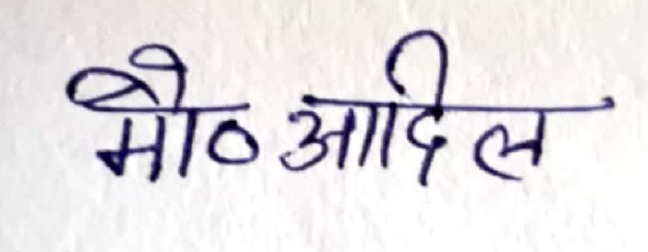 मौ० आदिल